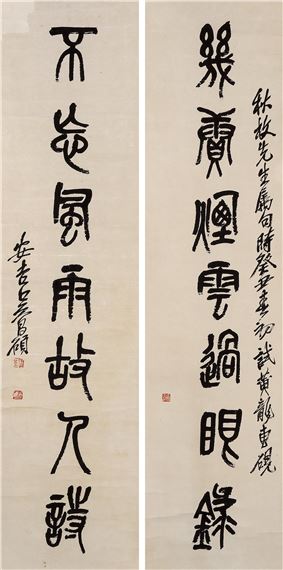 秋枚先生屬句時癸丑春初試黃龍專硯
幾賡煙雲過眼錄
不忘風雨故人詩
安吉吳昌碩